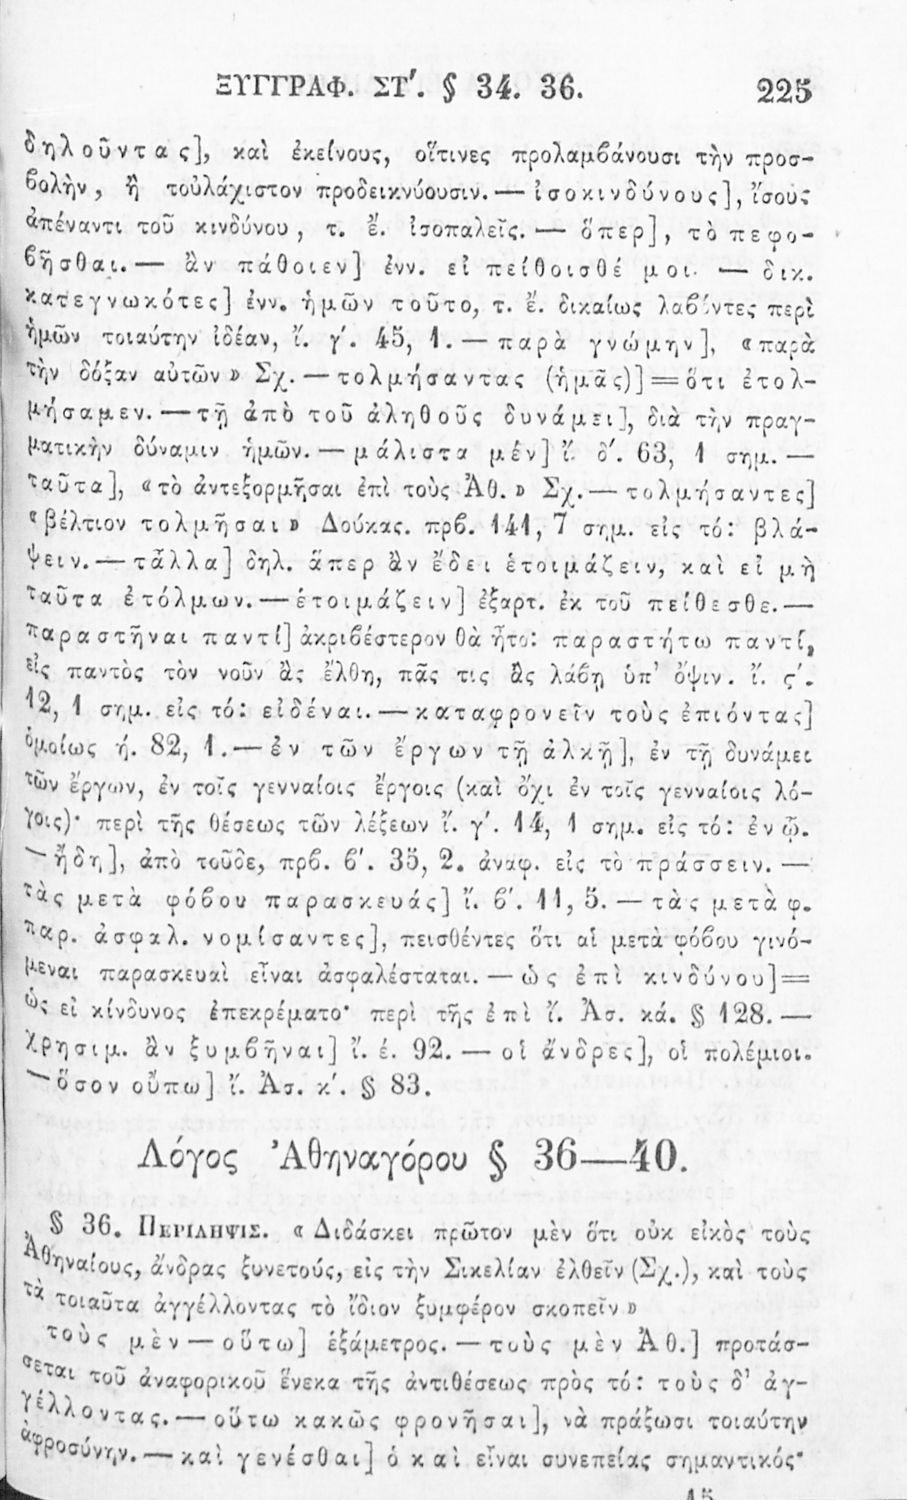 ΞΥΓΓΡΑΦ. ΣΤ΄. § 34. 36. 225
δηλοῦντας], καὶ ἐκείνους, οἵτινες προλαμβάνουσι τὴν προσ-
βολὴν, ἢ τοὐλάχιστον προδεικνύουσιν. — ἰσοκινδύνους], ἴσους
ἀπέναντι τοῦ κινδύνου, τ. ἔ. ἰσοπαλεῖς. — ὅπερ], τὸ πεφο-
βῆσθαι. — ἂν πάθοιεν] ἐνν. εἰ πείθοισθέ μοι. — δικ.
κατεγνωκότες] ἐνν. ἡμῶν τοῦτο, τ. ἔ. δικαίως λαβόντες περὶ
ἡμῶν τοιαύτην ἰδέαν, ἴ. γ΄. 45, 1. — παρὰ γνώμην], «παρὰ
τὴν δόξαν αὐτῶν» Σχ. — τολμήσαντας (ἡμᾶς)] = ὅτι ἐτολ-
μήσαμεν. — τῇ ἀπὸ τοῦ ἀληθοῦς δυνάμει], διὰ τὴν πραγ-
ματικὴν δύναμιν ἡμῶν. — μάλιστα μέν] ἴ. δ΄. 63, 1 σημ. —
ταῦτα], «τὸ ἀντεξορμῆσαι ἐπὶ τοὺς Ἀθ.» Σχ. — τολμήσαντες]
«βέλτιον τολμῆσαι» Δούκας. πρβ. 141, 7 σημ. εἰς τό: βλά-
ψειν. — τἆλλα] δηλ. ἅπερ ἂν ἔδει ἑτοιμάζειν, καὶ εἰ μὴ
ταῦτα ἐτόλμων. — ἑτοιμάζειν] ἐξαρτ. ἐκ τοῦ πείθεσθε. —
παραστῆναι παντί] ἀκριβέστερον θὰ ἦτο: παραστήτω παντί,
εἰς παντὸς τὸν νοῦν ἂς ἔλθῃ, πᾶς τις ἂς λάβῃ ὑπ' ὄψιν. ἴ. ς΄.
12, 1 σημ. εἰς τό: εἰδέναι. — καταφρονεῖν τοὺς ἐπιόντας]
ὁμοίως ή. 82, 1. — ἐν τῶν ἔργων τῇ ἀλκῇ], ἐν τῇ δυνάμει
τῶν ἔργων, ἐν τοῖς γενναίοις ἔργοις (καὶ ὄχι ἐν τοῖς γενναίοις λό-
γοις)· περὶ τῆς θέσεως τῶν λέξεων ἴ. γ΄. 14, 1 σημ. εἰς τό: ἐν ᾧ.
— ἤδη], ἀπὸ τοῦδε, πρβ. β΄. 35, 2. ἀναφ. εἰς τὸ πράσσειν. —
τὰς μετὰ φόβου παρασκευάς] ἴ. β΄. 11, 5. — τὰς μετὰ φ.
παρ. ἀσφαλ. νομίσαντες], πεισθέντες ὅτι αἱ μετὰ φόβου γινό-
μεναι παρασκευαὶ εἶναι ἀσφαλέσταται. — ὡς ἐπὶ κινδύνου] =
ὡς εἰ κίνδυνος ἐπεκρέματο· περὶ τῆς ἐπὶ ἴ. Ἀσ. κά. § 128. —
χρησιμ. ἂν ξυμβῆναι] ἴ. έ. 92. — οἱ ἄνδρες], οἱ πολέμιοι.
— ὅσον οὔπω] ἴ. Ἀσ. κ΄. § 83.
Λόγος Ἀθηναγόρου § 36—40.
§ 36. ΠΕΡΙΛΗΨΙΣ. «Διδάσκει πρῶτον μὲν ὅτι οὐκ εἰκὸς τοὺς
Ἀθηναίους, ἄνδρας ξυνετούς, εἰς τὴν Σικελίαν ἐλθεῖν (Σχ.), καὶ τοὺς
τὰ τοιαῦτα ἀγγέλλοντας τὸ ἴδιον ξυμφέρον σκοπεῖν»
τοὺς μὲν — οὕτω] ἑξάμετρος. — τοὺς μὲν Ἀθ.] προτάσ-
σεται τοῦ ἀναφορικοῦ ἕνεκα τῆς ἀντιθέσεως πρὸς τό: τοὺς δ' ἀγ-
γέλλοντας. — οὕτω κακῶς φρονῆσαι], νὰ πράξωσι τοιαύτην
ἀφροσύνην. — καὶ γενέσθαι] ὁ καὶ εἶναι συνεπείας σημαντικός·
15